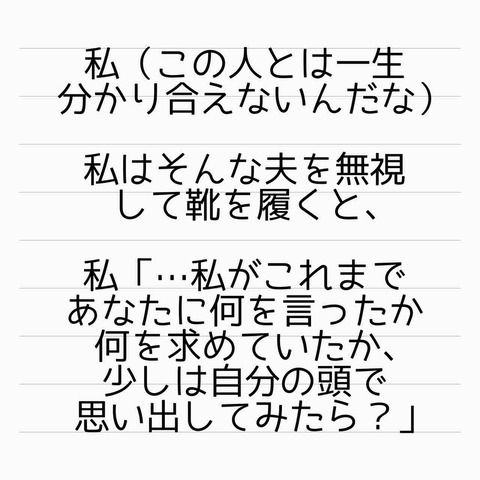 私（この人とは一生
分かり合えないんだな）
私はそんな夫を無視
して靴を履くと、
私「…私がこれまで
あなたに何を言ったか
何を求めていたか、
少しは自分の頭で
思い出してみたら？」